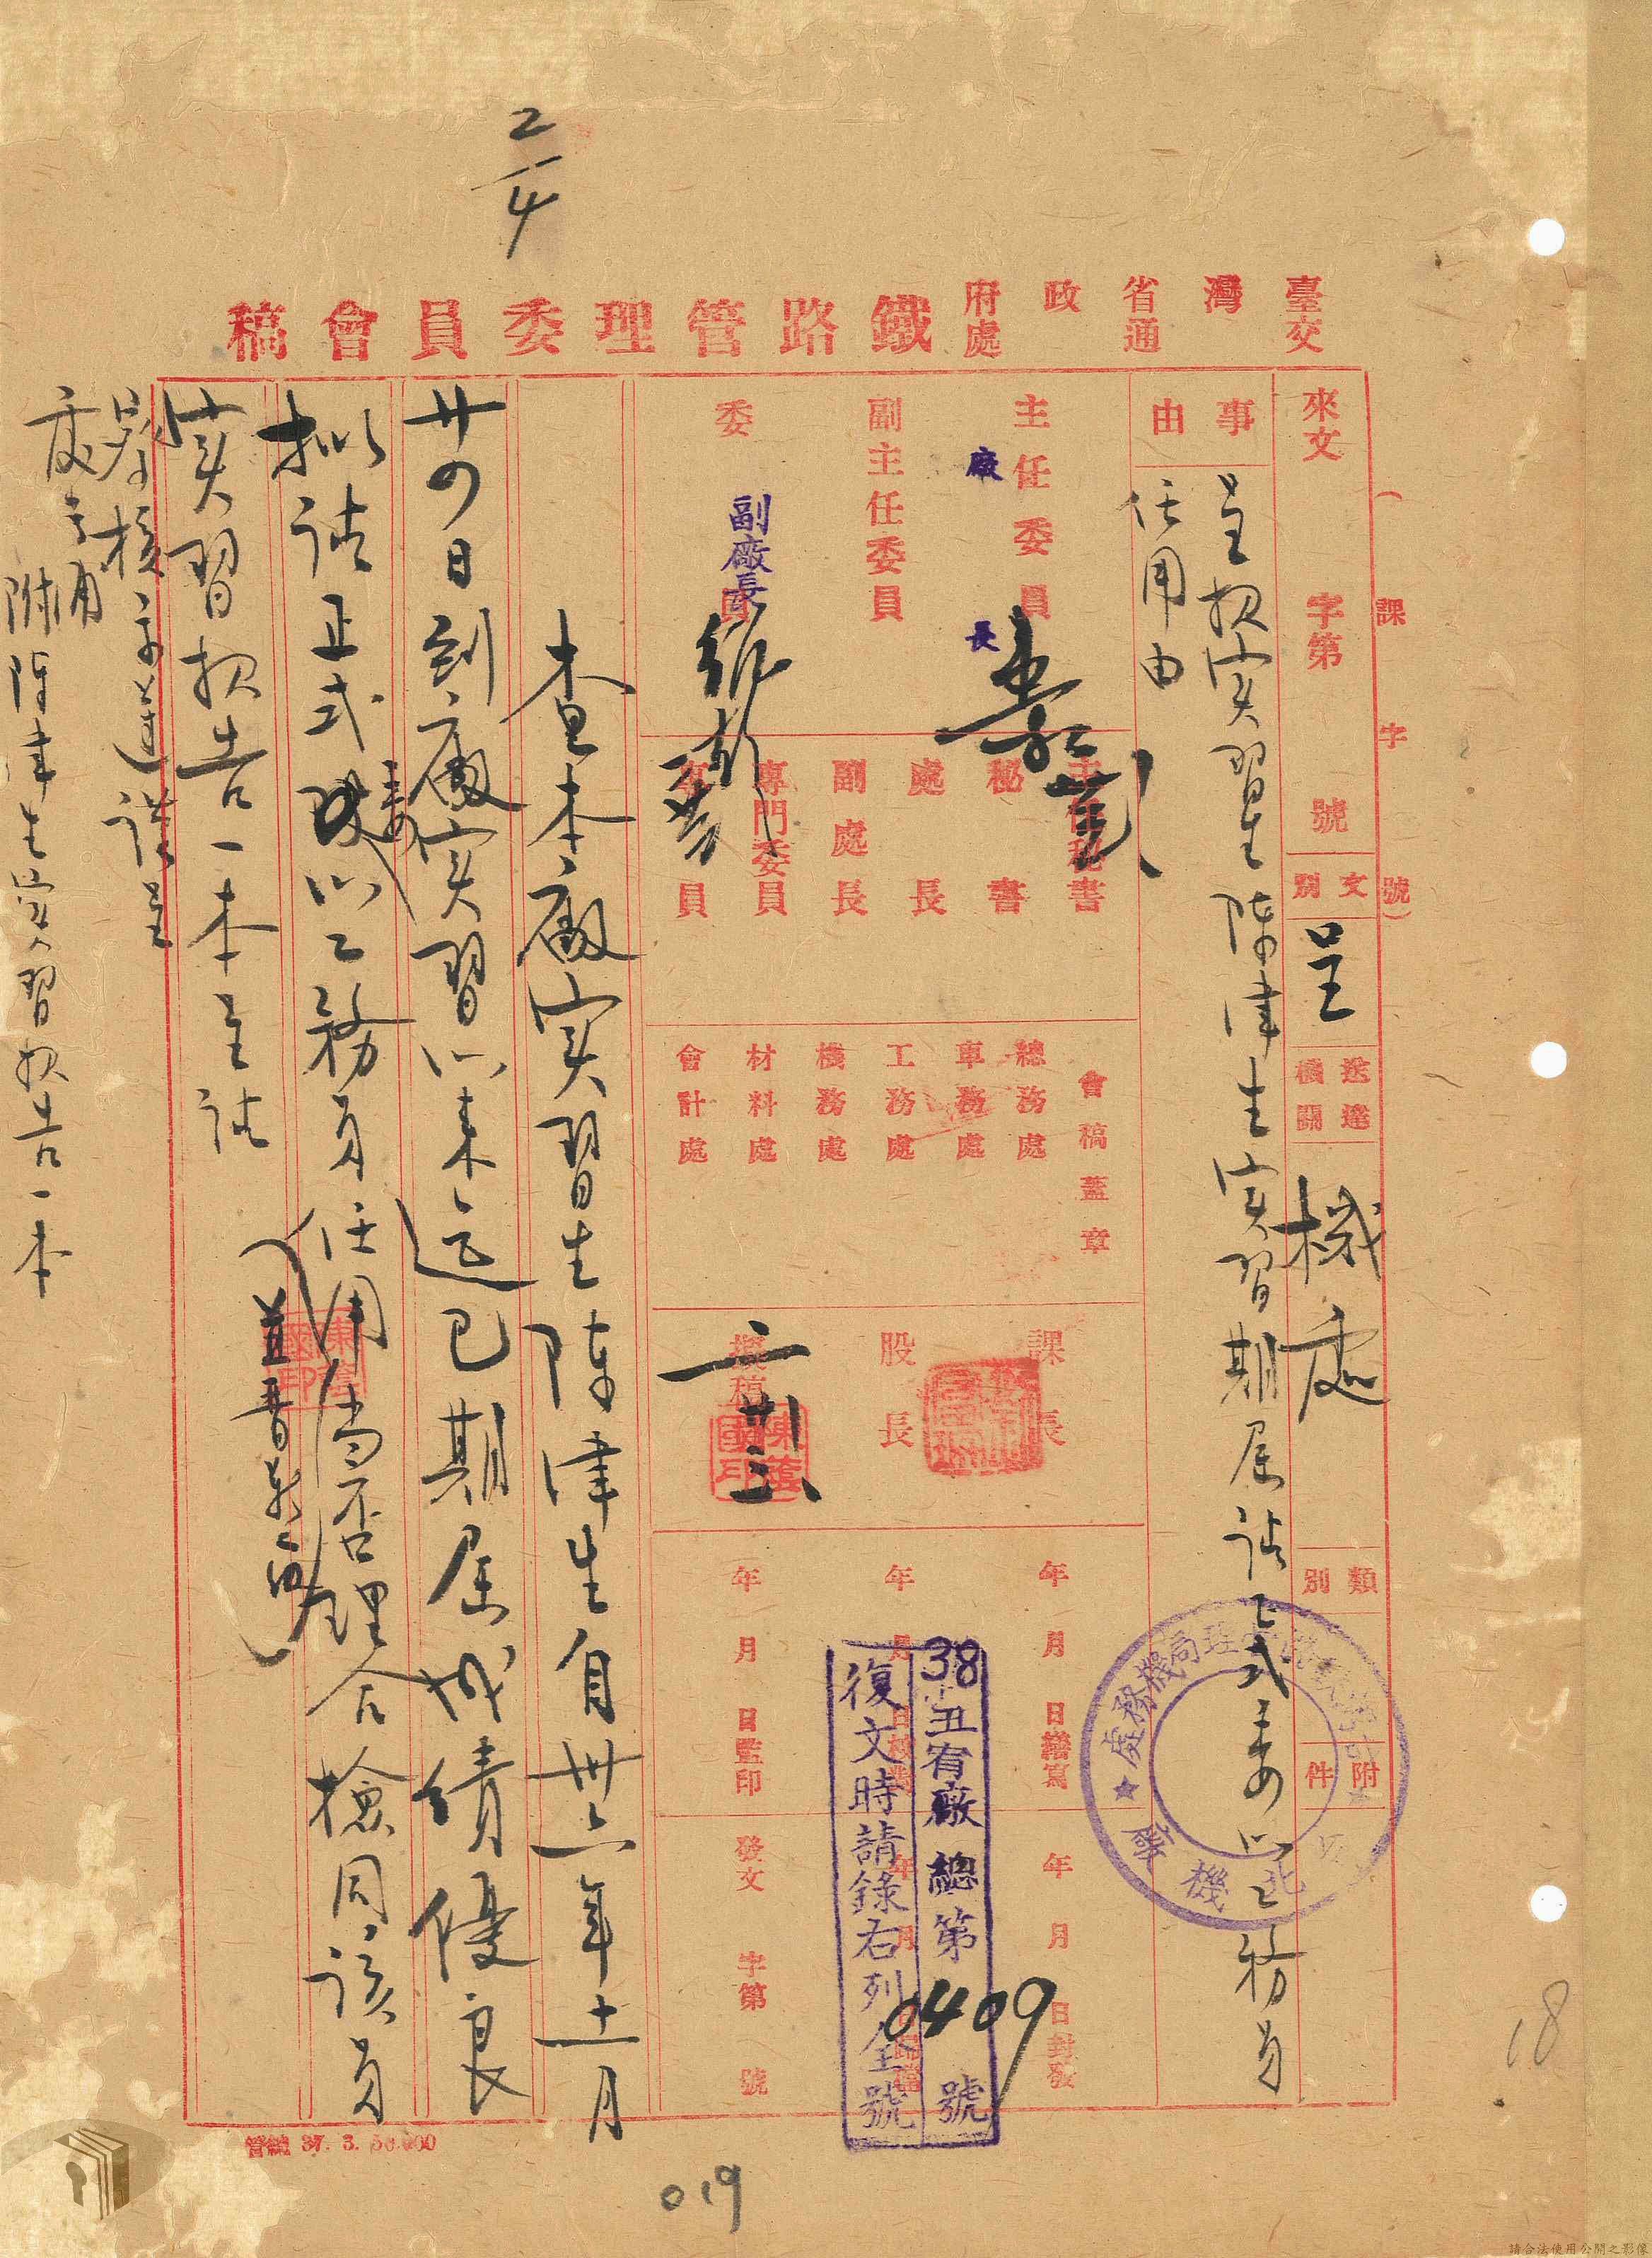 二/4
臺灣省政府交通處
鐵路管理委員會稿
（課字號）
來文 字第 號
文別 呈
送達機關 機處
類別
附件
事由
呈報實習生陳津生實習期屆請正式委以工務員
任用由
主任委員
廠長
副主任委員
委員
副廠長
主任秘書
秘書
處長
副處長
專門委員
員
會稿蓋章
總務處
車務處
工務處
機務處
材料處
會計處
課長
股長
擬稿
陳蔭國印
年 月 日繕寫
年 月 日校對
年 月 日監印
年 月 日封發
年 月 日歸檔
發文 字第 號
38丑宥廠總第0409號
復文時請錄右列全號
查本廠實習生陳津生自卅六年十一月
廿四日到廠實習以來迄已期屆成績優良
擬請正式委以工務員任用當否理合檢同該員
實習報告一本呈請
鑒核示遵謹呈
處長
附陳津生實習報告一本
管總 37. 3. 50.000
019
18
請合法使用公開之影像